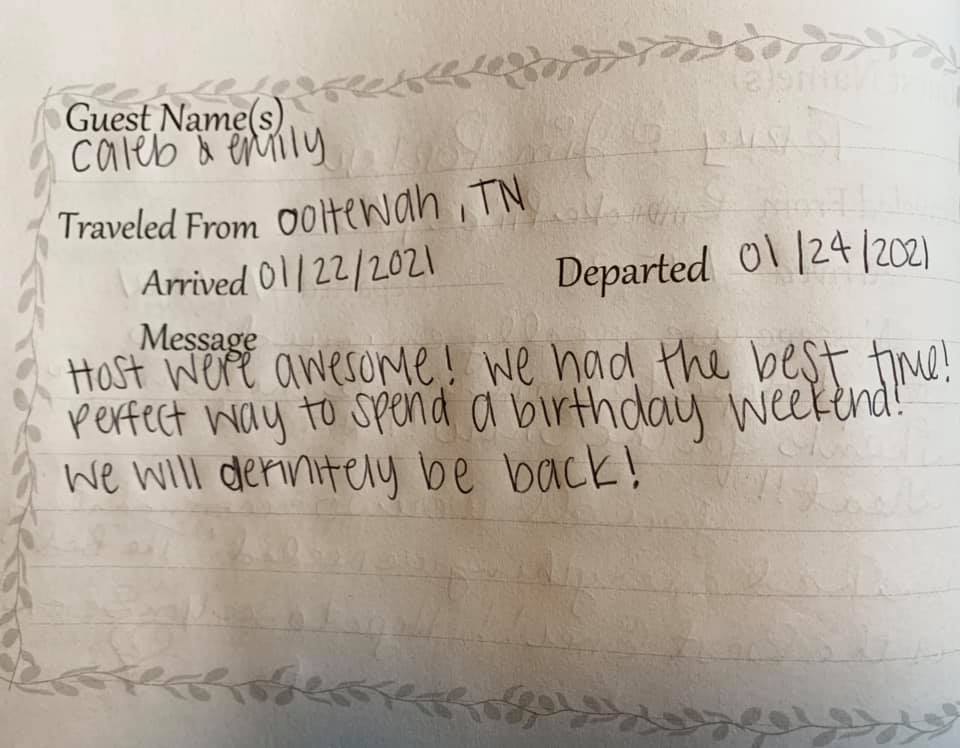 Guest Name(s)
Caleb & Emily
Traveled From Ooltewah, TN
Arrived 01/22/2021 Departed 01/24/2021
Message
Host were awesome! We had the best time!
Perfect way to spend a birthday weekend!
We will definitely be back!